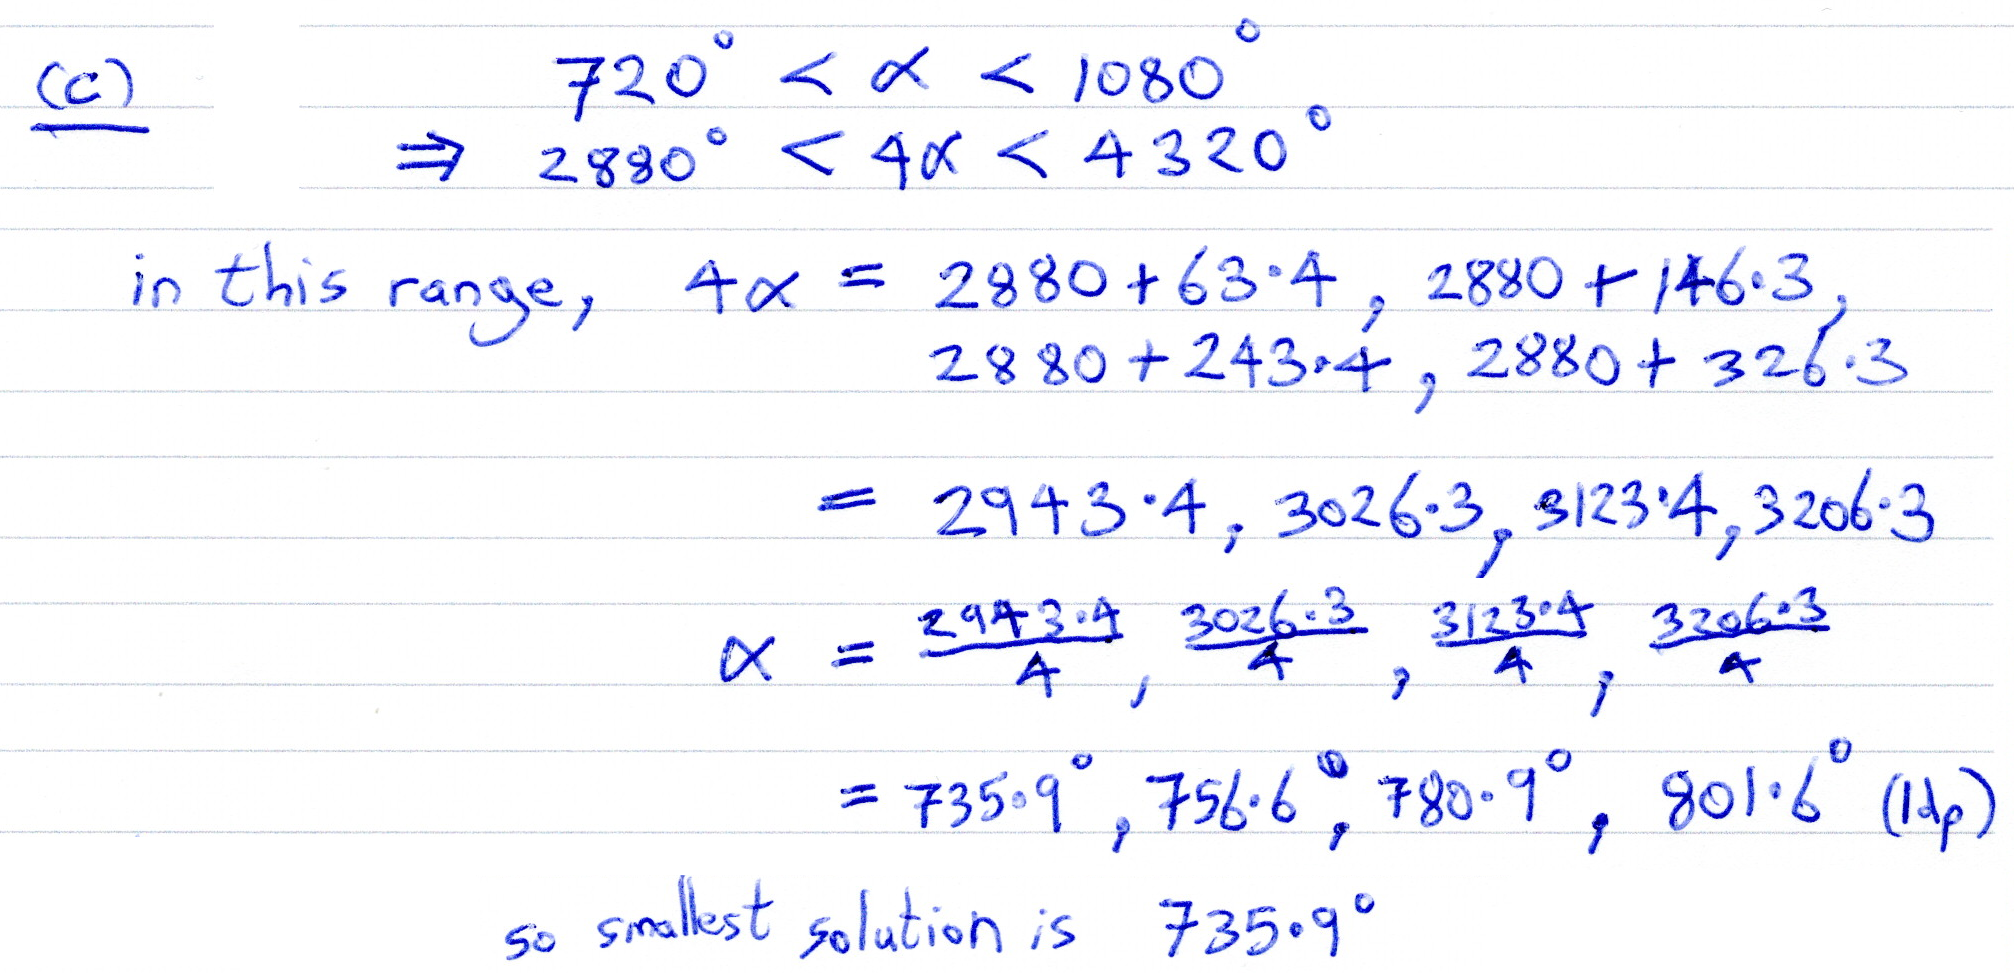 (c) 720° < α < 1080°
⇒ 2880° < 4α < 4320°
in this range, 4α = 2880 + 63·4, 2880 + 146·3,
2880 + 243·4, 2880 + 326·3
= 2943·4, 3026·3, 3123·4, 3206·3
α = 2943·4/4, 3026·3/4, 3123·4/4, 3206·3/4
= 735·9°, 756·6°, 780·9°, 801·6° (1dp)
so smallest solution is 735·9°